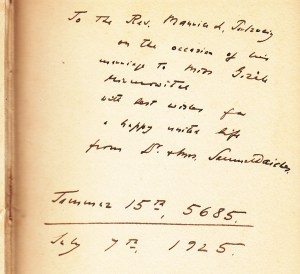 To the Rev. Maurice L.
on the occasion of his
marriage to Miss Gizela
with best wishes for
a happy united life
from Dr. & Mrs. Samuel Daiches
Tammuz 15th, 5685.
July 7th, 1925.